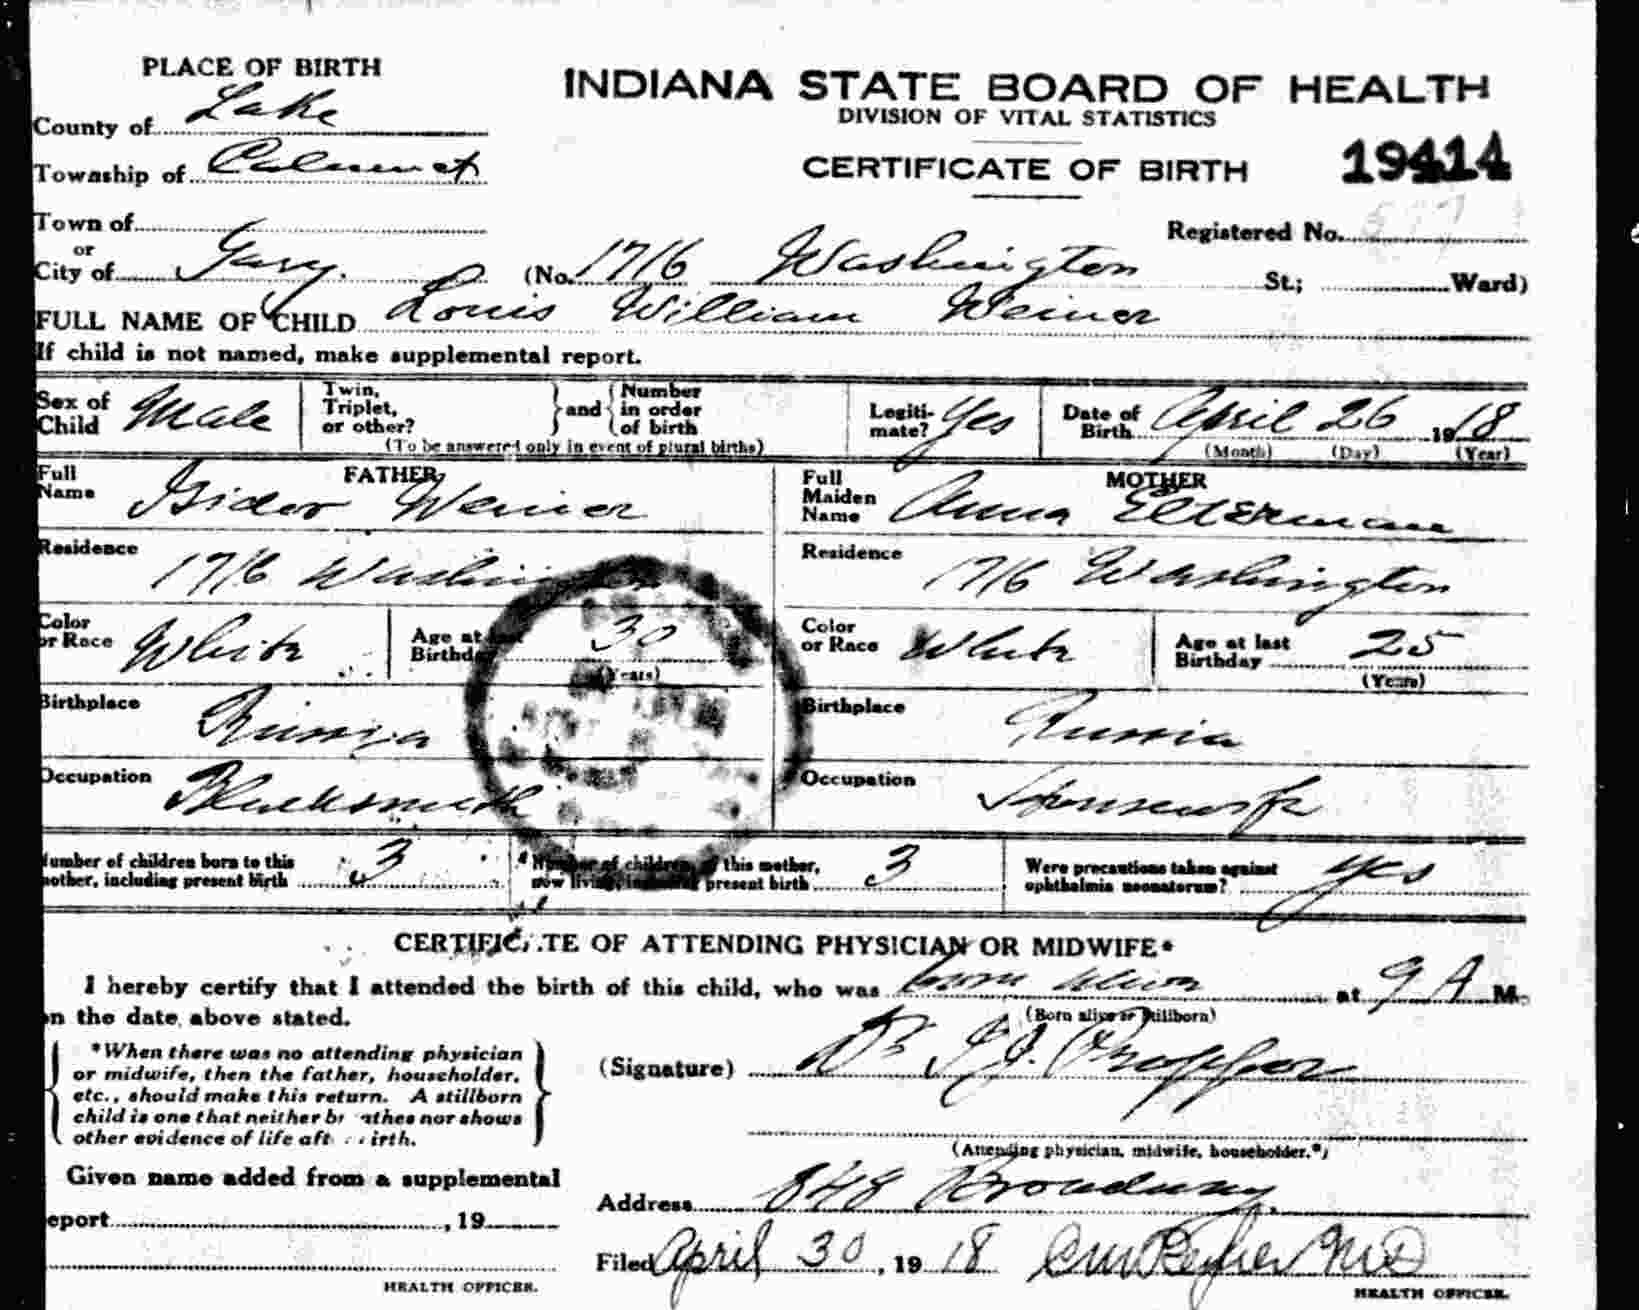 PLACE OF BIRTH
INDIANA STATE BOARD OF HEALTH
DIVISION OF VITAL STATISTICS
CERTIFICATE OF BIRTH 19414
County of Lake
Township of Calumet
Town of
or
City of Gary. (No. 1716 Washington St.; Ward)
Registered No.
FULL NAME OF CHILD Louis William Weiner
If child is not named, make supplemental report.
Sex of Child Male
Twin, Triplet, or other? and Number in order of birth
(To be answered only in event of plural births)
Legitimate? Yes
Date of Birth April 26 1918
(Month) (Day) (Year)
FATHER
Full Name Isidor Weiner
Residence 1716 Washington
Color or Race White
Age at last Birthday 30
(Years)
Birthplace Russia
Occupation Blacksmith
MOTHER
Full Maiden Name Anna Elterman
Residence 1716 Washington
Color or Race White
Age at last Birthday 25
(Years)
Birthplace Russia
Occupation Housewife
Number of children born to this mother, including present birth 3
*Number of children of this mother, now living, including present birth 3
Were precautions taken against ophthalmia neonatorum? yes
CERTIFICATE OF ATTENDING PHYSICIAN OR MIDWIFE*
I hereby certify that I attended the birth of this child, who was born alive at 9 A M.
(Born alive or stillborn)
on the date above stated.
*When there was no attending physician
or midwife, then the father, householder,
etc., should make this return. A stillborn
child is one that neither breathes nor shows
other evidence of life after birth.
(Signature) Dr
(Attending physician, midwife, householder.*)
Given name added from a supplemental
report , 19
HEALTH OFFICER.
Address 848 Broadway.
Filed April 30, 1918 M D
HEALTH OFFICER.